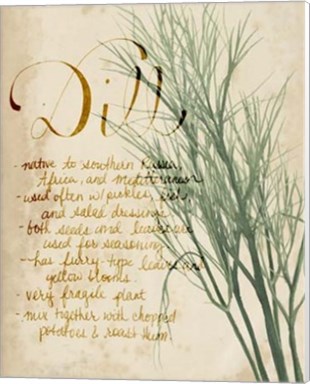 Dill
- native to southern Russia,
Africa, and Mediterranean
- used often w/ pickles, fish,
and salad dressings
- both seeds and leaves are
used for seasoning
- has furry-type leaves and
yellow blooms.
- very fragile plant
- mix together with chopped
potatoes & roast them.